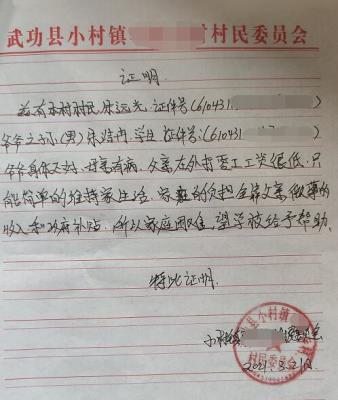 武功县小村镇 村村民委员会
证明
兹有本村村民 远光,证件号:(610431
爷爷之孙(男) 学生 证件号:(610431
爷爷身体不好,母亲有病,父亲在外打零工工资很低,只
能简单的维持家生活,家庭的负担全靠父亲微薄的
收入和政府补贴,所以家庭困难,望学校给予帮助。
特此证明
小村镇 村民委员会
2021.3.21日
武功县小村镇
村民委员会